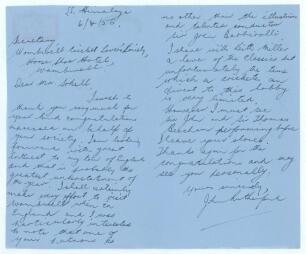 St. Himalaya
6/4/50.
Secretary
Wombwell Cricket Lovers Society,
Horse Shoe Hotel,
Wombwell
Dear Mr
I want to
thank you very much for
your kind congratulations
message on behalf of
your society. I am looking
forward with great
interest to my tour of England
and that is probably the
greatest understatement of
the year. I shall certainly
make every effort to visit
Wombwell when in
England and I was
particularly interested
to note that one of
your Patrons is
no other than the illustrious
and talented conductor
Sir John Barbirolli.
I share with Keith Miller
a love of the classics but
unfortunately the time
which a cricketer can
devote to this hobby
is very limited.
However I must see
Sir John and Sir Thomas
Beecham performing before
I leave your shores.
Thanks again for the
congratulations and may
see you personally.
Yours sincerely,